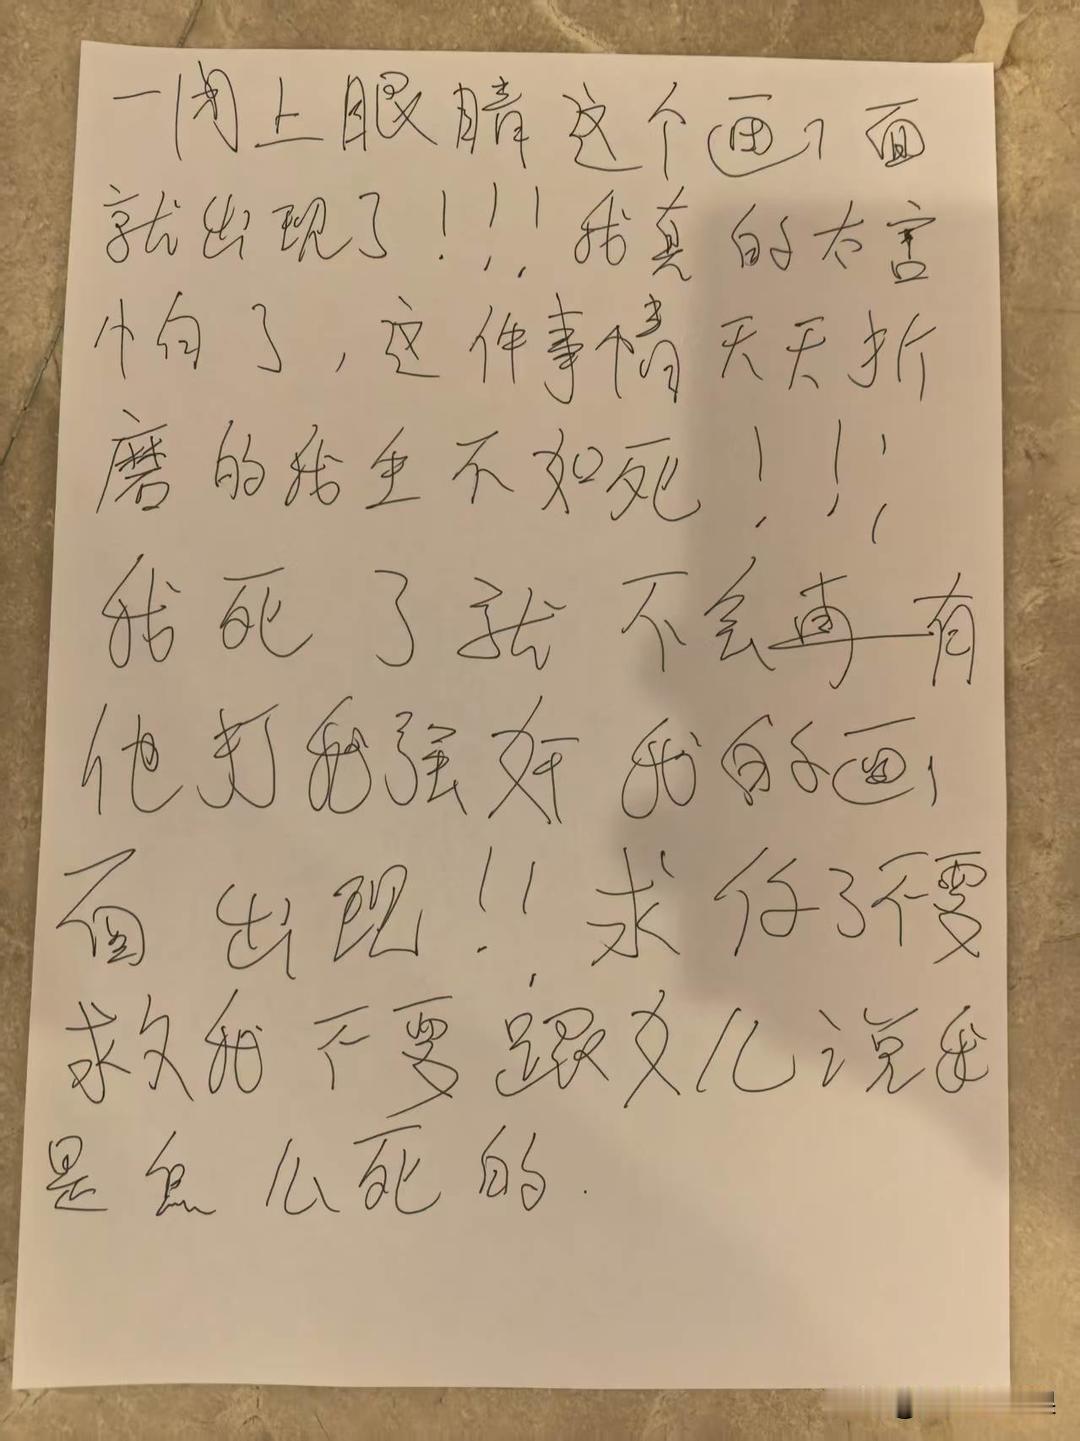 一闭上眼睛这个画面
就出现了！！！我真的太害
怕了，这件事情天天折
磨的我生不如死！！！
我死了就不会再有
他打我强奸我的画
面出现！！求你了不要
救我不要跟女儿说我
是怎么死的.